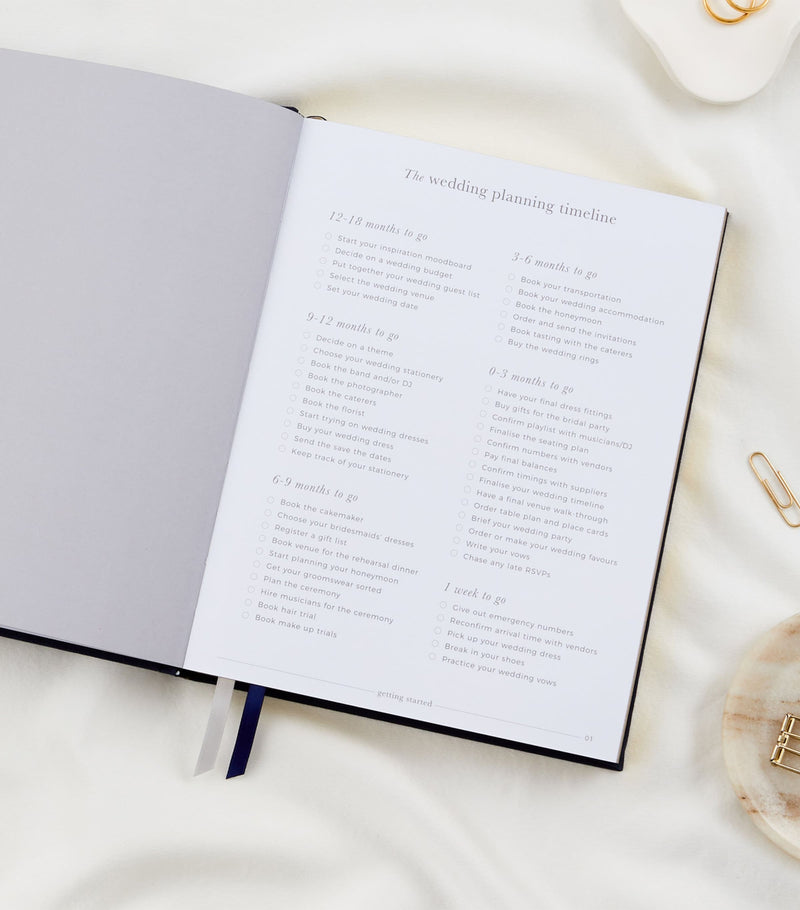 The wedding planning timeline
12-18 months to go
Start your inspiration moodboard
Decide on a wedding budget
Put together your wedding guest list
Select the wedding venue
Set your wedding date
9-12 months to go
Decide on a theme
Choose your wedding stationery
Book the band and/or DJ
Book the photographer
Book the caterers
Book the florist
Start trying on wedding dresses
Buy your wedding dress
Send the save the dates
Keep track of your stationery
6-9 months to go
Book the cakemaker
Choose your bridesmaids' dresses
Register a gift list
Book venue for the rehearsal dinner
Start planning your honeymoon
Get your groomswear sorted
Plan the ceremony
Hire musicians for the ceremony
Book hair trial
Book make up trials
3-6 months to go
Book your transportation
Book your wedding accommodation
Book the honeymoon
Order and send the invitations
Book tasting with the caterers
Buy the wedding rings
0-3 months to go
Have your final dress fittings
Buy gifts for the bridal party
Confirm playlist with musicians/DJ
Finalise the seating plan
Confirm numbers with vendors
Pay final balances
Confirm timings with suppliers
Finalise your wedding timeline
Have a final venue walk-through
Order table plan and place cards
Brief your wedding party
Order or make your wedding favours
Write your vows
Chase any late RSVPs
1 week to go
Give out emergency numbers
Reconfirm arrival time with vendors
Pick up your wedding dress
Break in your shoes
Practice your wedding vows
getting started
01